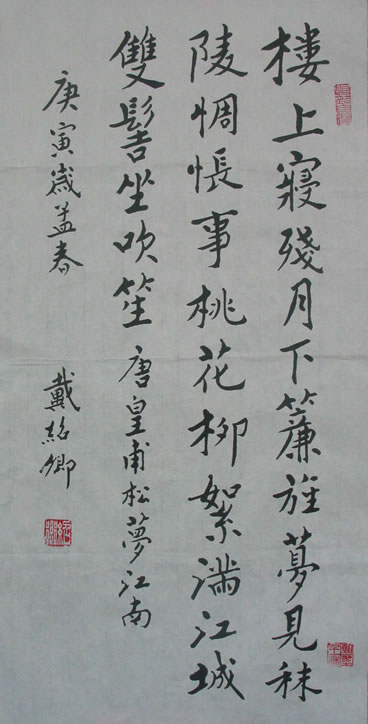 樓上寢殘月下簾旌夢見秣
陵惆悵事桃花柳絮滿江城
雙髻坐吹笙 唐皇甫松夢江南
庚寅歲孟春 戴紹卿